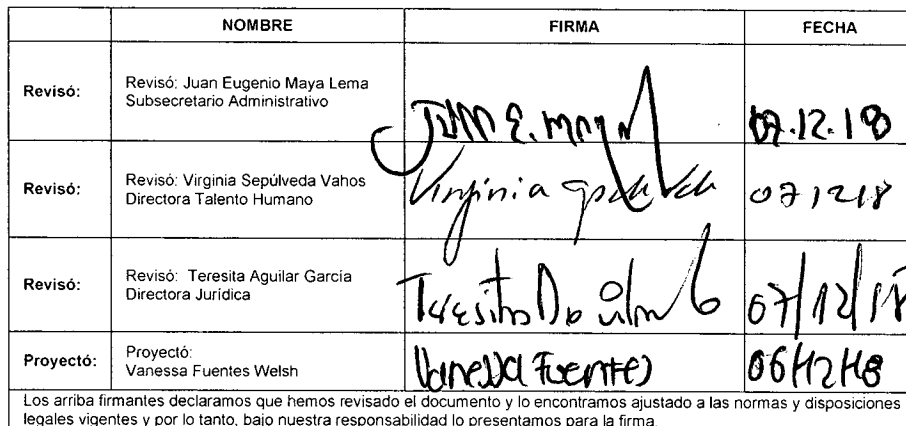 NOMBRE FIRMA FECHA
Revisó: Revisó: Juan Eugenio Maya Lema
Subsecretario Administrativo
Juan E. Maya 07.12.18
Revisó: Revisó: Virginia Sepúlveda Vahos
Directora Talento Humano
Virginia 071218
Revisó: Revisó: Teresita Aguilar García
Directora Jurídica
Teresita 07/12/18
Proyectó: Proyectó:
Vanessa Fuentes Welsh
Vanessa Fuentes 06/12/18
Los arriba firmantes declaramos que hemos revisado el documento y lo encontramos ajustado a las normas y disposiciones
legales vigentes y por lo tanto, bajo nuestra responsabilidad lo presentamos para la firma.